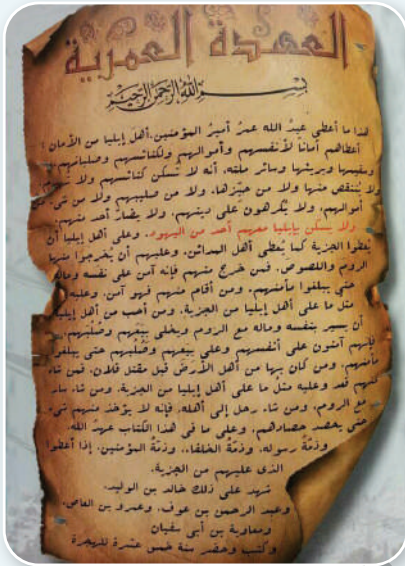 العهدة العمرية
بسم الله الرحمن الرحيم
هذا ما أعطى عبد الله عمر أمير المؤمنين، أهل إيليا من الأمان :
أعطاهم أماناً لأنفسهم وأموالهم ولكنائسهم وصلبانهم
وسقيمها وبريئها وسائر ملتها، أنه لا تسكن كنائسهم ولا تهدم
ولا ينتقص منها ولا من حيّزها، ولا من صليبهم ولا من شيء
أموالهم، ولا يُكرهون على دينهم، ولا يضارّ أحد منهم،
ولا يسكن بإيليا معهم أحد من اليهود، وعلى أهل إيليا أن
يُعطوا الجزية كما يُعطي أهل المدائن، وعليهم أن يُخرجوا منها
الروم واللصوص، فمن خرج منهم فإنه آمن على نفسه وماله
حتى يبلغوا مأمنهم، ومن أقام منهم فهو آمن، وعليه
مثل ما على أهل إيليا من الجزية، ومن أحب من أهل إيليا
أن يسير بنفسه وماله مع الروم ويخلي بيَعهم وصُلُبَهم،
فإنهم آمنون على أنفسهم وعلى بيَعهم وصُلُبهم حتى يبلغوا
مأمنهم، ومن كان بها من أهل الأرض قبل مقتل فلان، فمن شاء
منهم قعد وعليه مثل ما على أهل إيليا من الجزية، ومن شاء سار
مع الروم، ومن شاء رجل إلى أهله، فإنه لا يؤخذ منهم شيء
حتى يحصد حصادهم، وعلى ما في هذا الكتاب عهد الله،
وذمّة رسوله، وذمّة الخلفاء، وذمّة المؤمنين، إذا أعطوا
الذي عليهم من الجزية.
شهد على ذلك خالد بن الوليد،
وعبد الرحمن بن عوف، وعمرو بن العاص،
ومعاوية بن أبي سفيان
وكُتب وحضر سنة خمس عشرة للهجرة